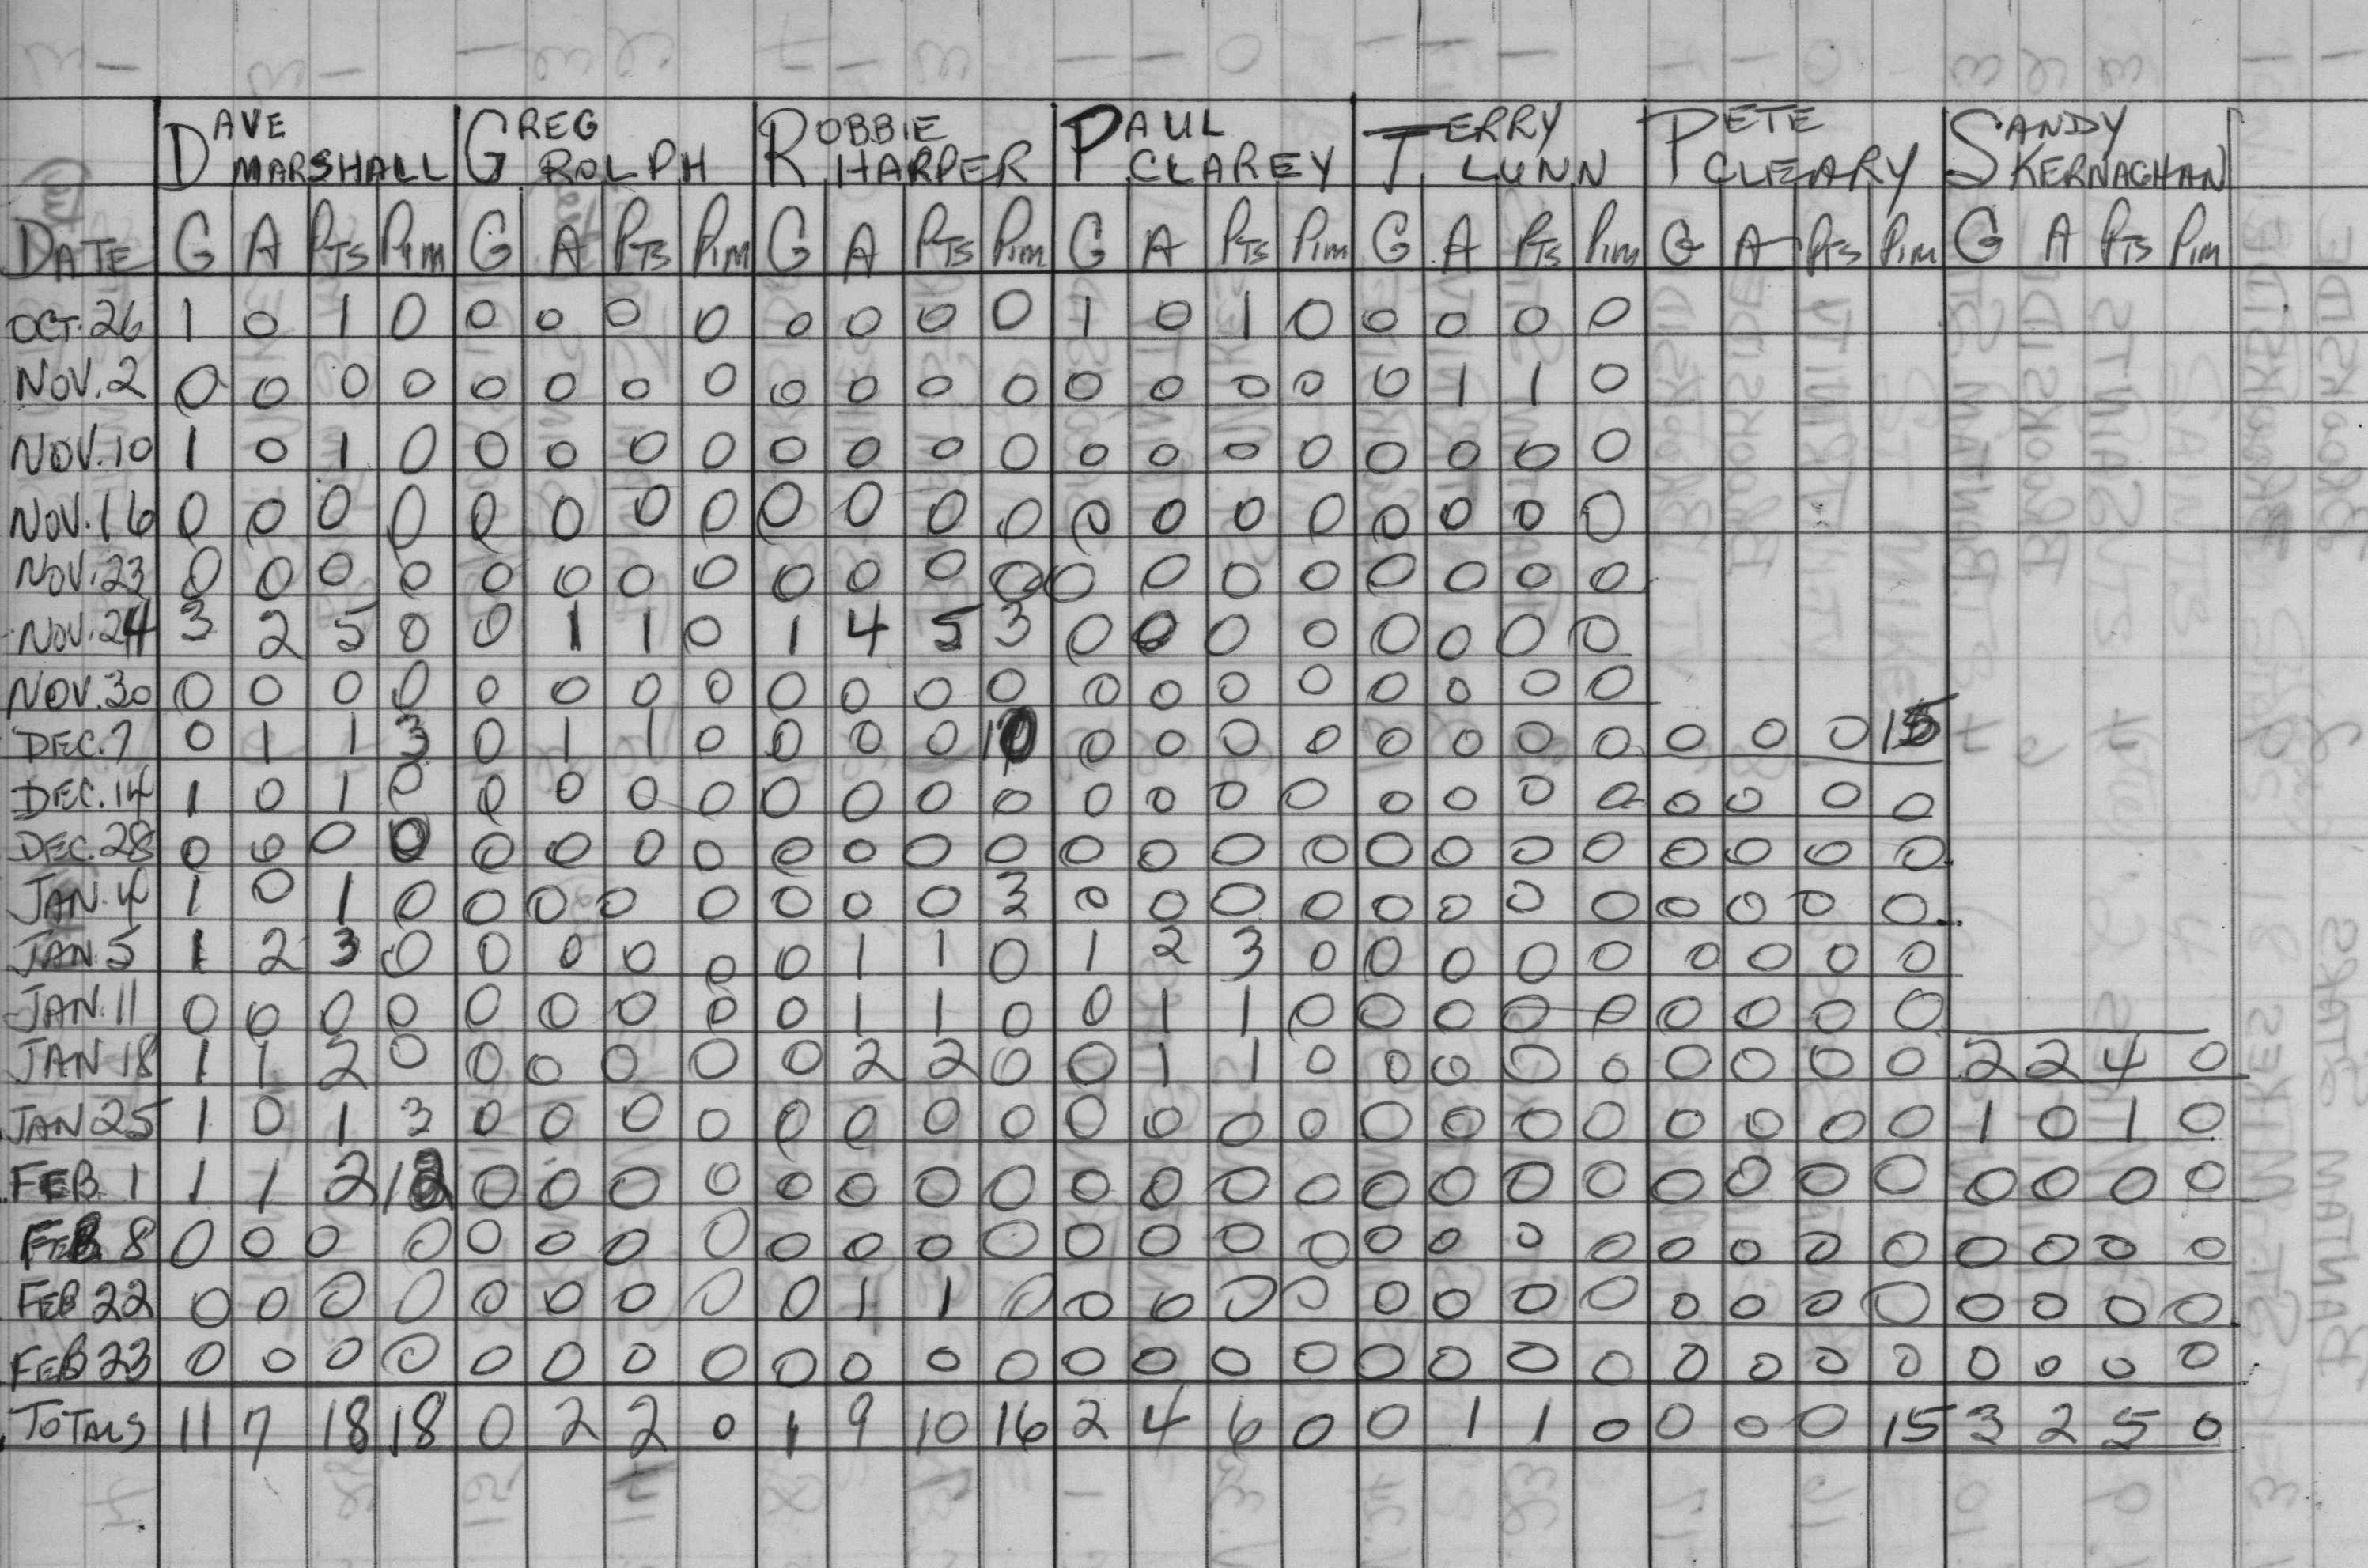 DAVE MARSHALL GREG ROLPH ROBBIE HARPER PAUL CLAREY TERRY LUNN PETE CLEARY SANDY KERNAGHAN
DATE G A PTS PIM G A PTS PIM G A PTS PIM G A PTS PIM G A PTS PIM G A PTS PIM G A PTS PIM
OCT. 26 1 0 1 0 0 0 0 0 0 0 0 0 1 0 1 0 0 0 0 0
NOV. 2 0 0 0 0 0 0 0 0 0 0 0 0 0 0 0 0 0 1 1 0
NOV. 10 1 0 1 0 0 0 0 0 0 0 0 0 0 0 0 0 0 0 0 0
NOV. 16 0 0 0 0 0 0 0 0 0 0 0 0 0 0 0 0 0 0 0 0
NOV. 23 0 0 0 0 0 0 0 0 0 0 0 0 0 0 0 0 0 0 0 0
NOV. 24 3 2 5 0 0 1 1 0 1 4 5 3 0 0 0 0 0 0 0 0
NOV. 30 0 0 0 0 0 0 0 0 0 0 0 0 0 0 0 0 0 0 0 0
DEC. 7 0 1 1 3 0 1 1 0 0 0 0 10 0 0 0 0 0 0 0 0 0 0 0 15
DEC. 14 1 0 1 0 0 0 0 0 0 0 0 0 0 0 0 0 0 0 0 0 0 0 0 0
DEC. 28 0 0 0 0 0 0 0 0 0 0 0 0 0 0 0 0 0 0 0 0 0 0 0 0
JAN. 4 1 0 1 0 0 0 0 0 0 0 0 3 0 0 0 0 0 0 0 0 0 0 0 0
JAN. 5 1 2 3 0 0 0 0 0 0 1 1 0 1 2 3 0 0 0 0 0 0 0 0 0
JAN. 11 0 0 0 0 0 0 0 0 0 1 1 0 0 1 1 0 0 0 0 0 0 0 0 0
JAN 18 1 1 2 0 0 0 0 0 0 2 2 0 0 1 1 0 0 0 0 0 0 0 0 0 2 2 4 0
JAN 25 1 0 1 3 0 0 0 0 0 0 0 0 0 0 0 0 0 0 0 0 0 0 0 0 1 0 1 0
FEB 1 1 1 2 12 0 0 0 0 0 0 0 0 0 0 0 0 0 0 0 0 0 0 0 0 0 0 0 0
FEB 8 0 0 0 0 0 0 0 0 0 0 0 0 0 0 0 0 0 0 0 0 0 0 0 0 0 0 0 0
FEB 22 0 0 0 0 0 0 0 0 0 1 1 0 0 0 0 0 0 0 0 0 0 0 0 0 0 0 0 0
FEB 23 0 0 0 0 0 0 0 0 0 0 0 0 0 0 0 0 0 0 0 0 0 0 0 0 0 0 0 0
TOTALS 11 7 18 18 0 2 2 0 1 9 10 16 2 4 6 0 0 1 1 0 0 0 0 15 3 2 5 0